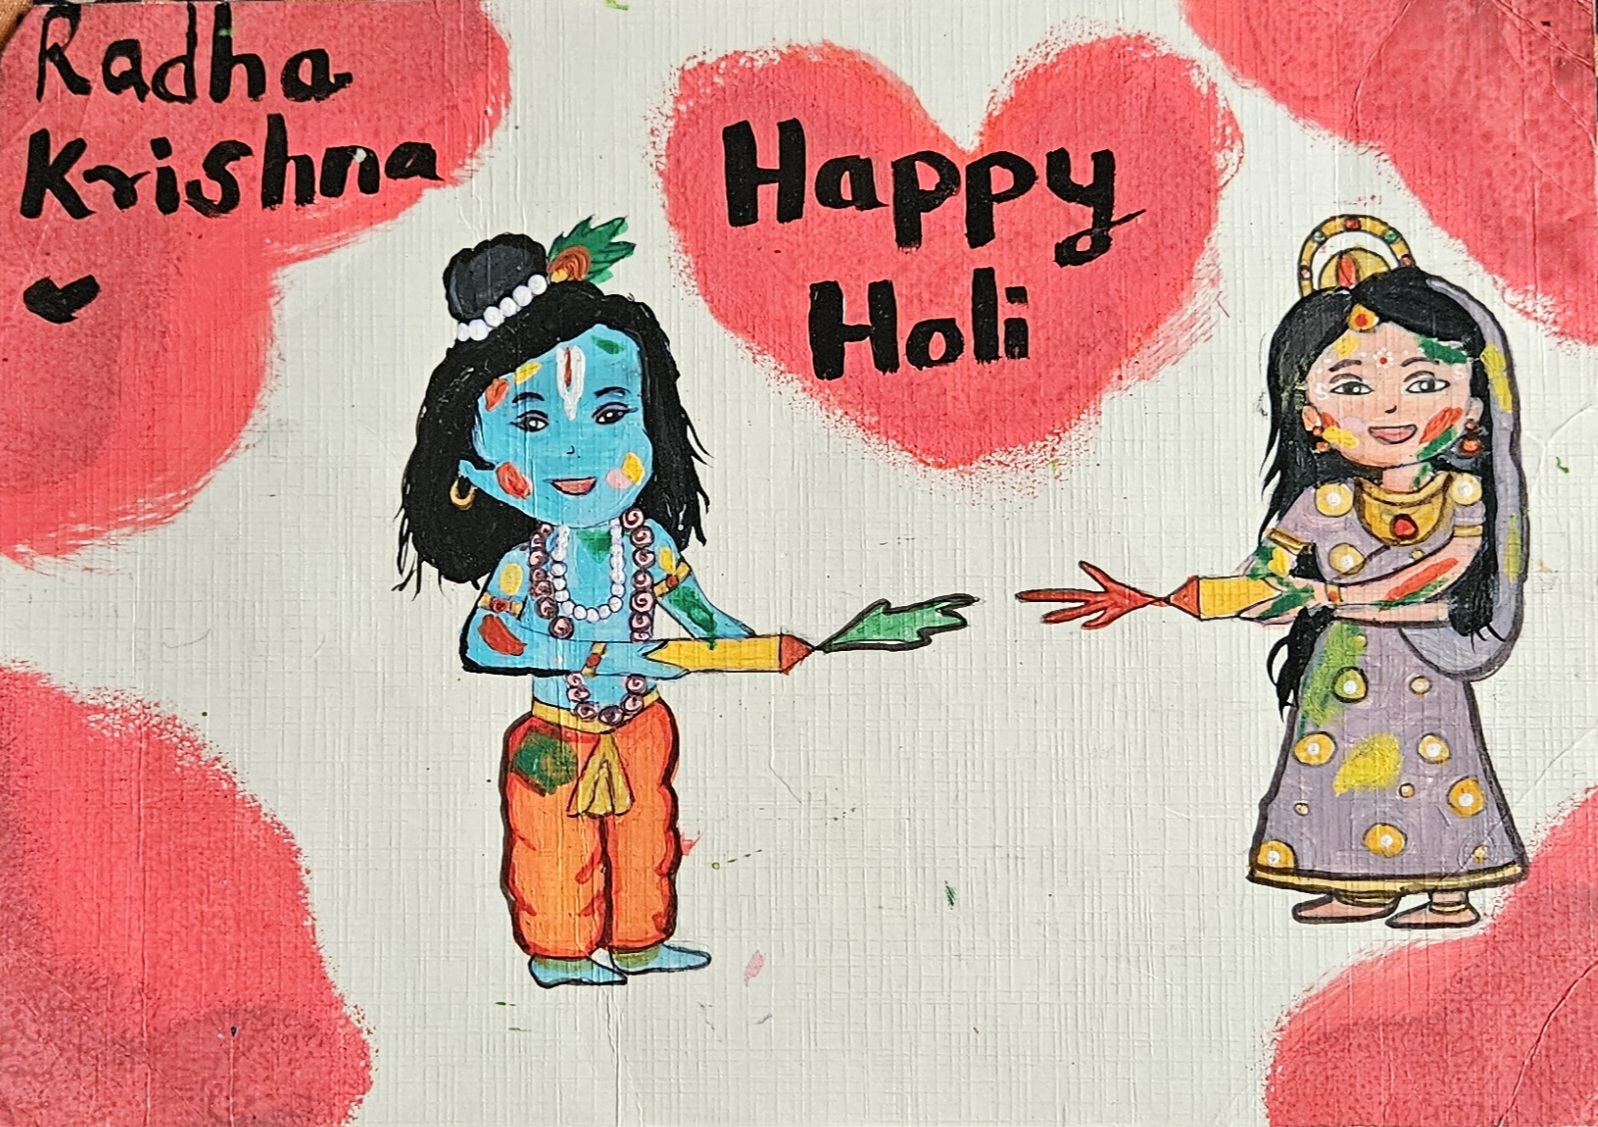 Radha
Krishna
Happy
Holi